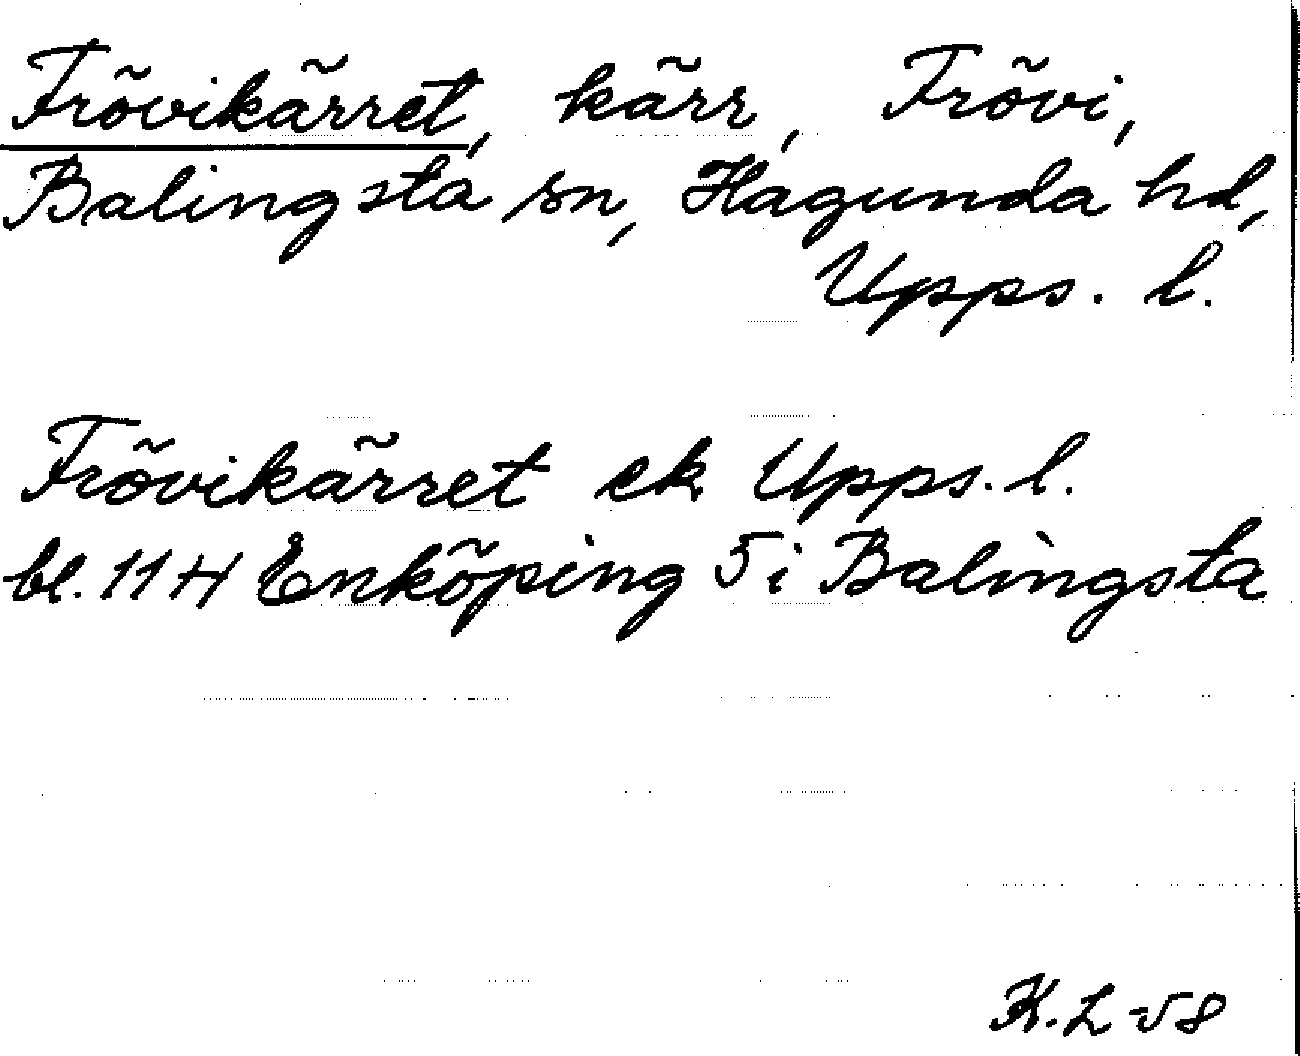 Frövikärret, kärr, Frövi,
Balingsta sn, Hagunda hd,
Upps. l.
Frövikärret ek Upps. l.
bl. 11 H Enköping 5 i Balingsta
K. L -58